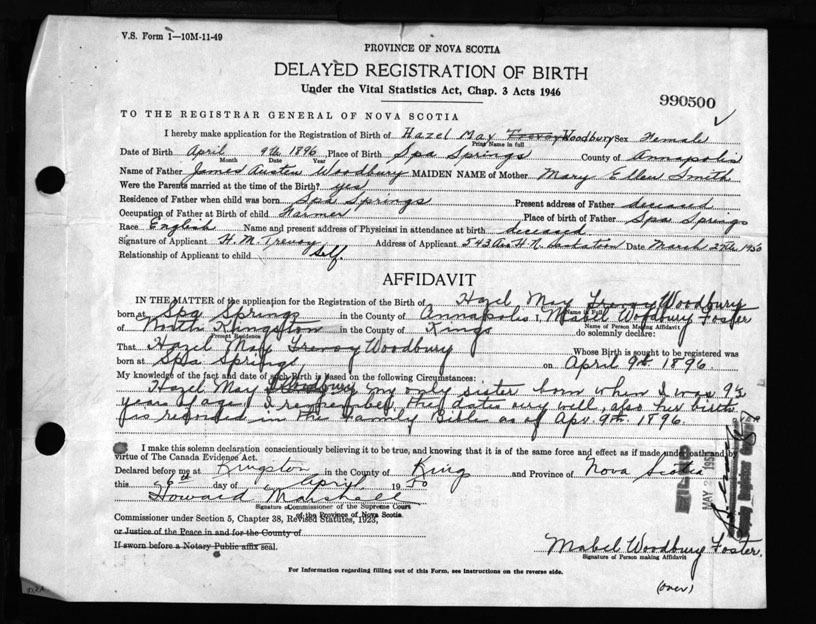 V.S. Form 1—10M-11-49
PROVINCE OF NOVA SCOTIA
DELAYED REGISTRATION OF BIRTH
Under the Vital Statistics Act, Chap. 3 Acts 1946
990500
TO THE REGISTRAR GENERAL OF NOVA SCOTIA
I hereby make application for the Registration of Birth of Hazel May Trevoy Woodbury Sex Female
Print Name in full
Date of Birth April 9th 1896 Place of Birth Spa Springs County of Annapolis
Month Date Year
Name of Father James Austen Woodbury MAIDEN NAME of Mother Mary Ellen Smith
Were the Parents married at the time of the Birth? yes
Residence of Father when child was born Spa Springs Present address of Father deceased
Occupation of Father at Birth of child Farmer Place of birth of Father Spa Springs
Race English Name and present address of Physician in attendance at birth deceased
Signature of Applicant H. M. Trevoy Address of Applicant 543 Saskatoon Date March 27th 1950
Relationship of Applicant to child Self.
AFFIDAVIT
IN THE MATTER of the application for the Registration of Birth of Hazel May Trevoy Woodbury
Name in Full
born at Spa Springs in the County of Annapolis I, Mabel Woodbury Foster
Name of Person Making Affidavit
of North Kingston in the County of Kings do solemnly declare:
Present Residence
That Hazel May Trevoy Woodbury Whose Birth is sought to be registered was
born at Spa Springs on April 9th 1896
My knowledge of the fact and date of such Birth is based on the following Circumstances:
Hazel May Woodbury my only sister born when I was 9½
years of age. I remember the dates very well, also her birth
is recorded in the Family Bible as of Apr. 9th 1896.
I make this solemn declaration conscientiously believing it to be true, and knowing that it is of the same force and effect as if made under oath and by
virtue of The Canada Evidence Act.
Declared before me at Kingston in the County of King and Province of Nova Scotia
this 26th day of April 1950
Howard Marshall
Signature of Commissioner of the Supreme Court
of the Province of Nova Scotia
Commissioner under Section 5, Chapter 38, Revised Statutes, 1923,
or Justice of the Peace in and for the County of
If sworn before a Notary Public affix seal.
FILED
MAY 2 195
Mabel Woodbury Foster.
Signature of Person making Affidavit
For Information regarding filling out of this Form, see Instructions on the reverse side.
(over)